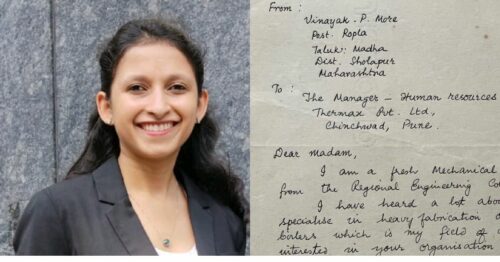 From :
Vinayak . P. More
Post. Ropla
Taluk: Madha
Dist. Sholapur
Maharashtra
To :
The Manager — Human resources
Thermax Pvt. Ltd.,
Chinchwad, Pune.
Dear madam,
I am a fresh Mechanical
from the Regional Engineering Co
I have heard a lot abou
specialise in heavy fabrication
boilers which is my field of
interested in your organisation